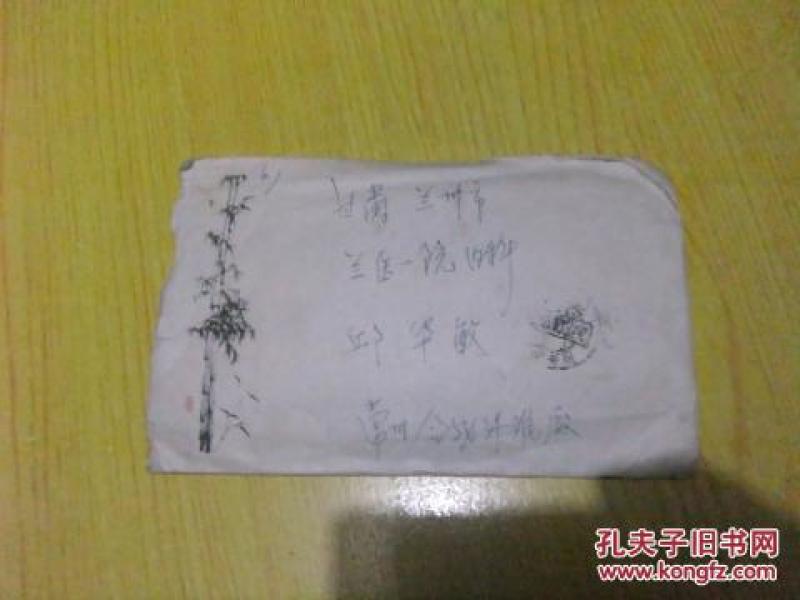 甘肃 兰州市
兰医一院内科
邱华敏
常州合成纤维厂
孔夫子旧书网
www.kongfz.com